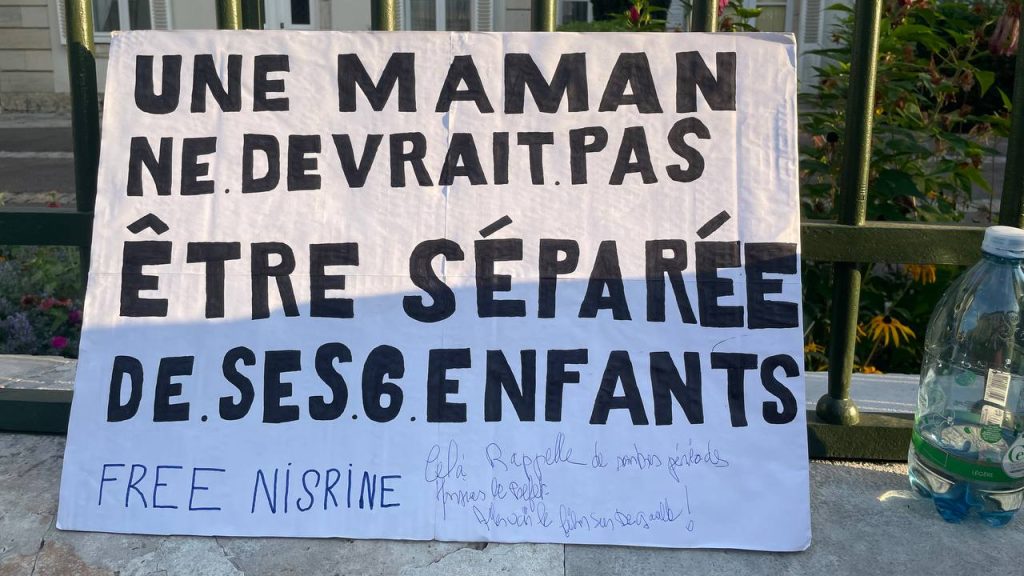 UNE MAMAN
NE.DEVRAIT.PAS
ÊTRE SÉPARÉE
DE.SES.6.ENFANTS
FREE NISRINE
Celà Rappelle de sombres périodes
le film sur